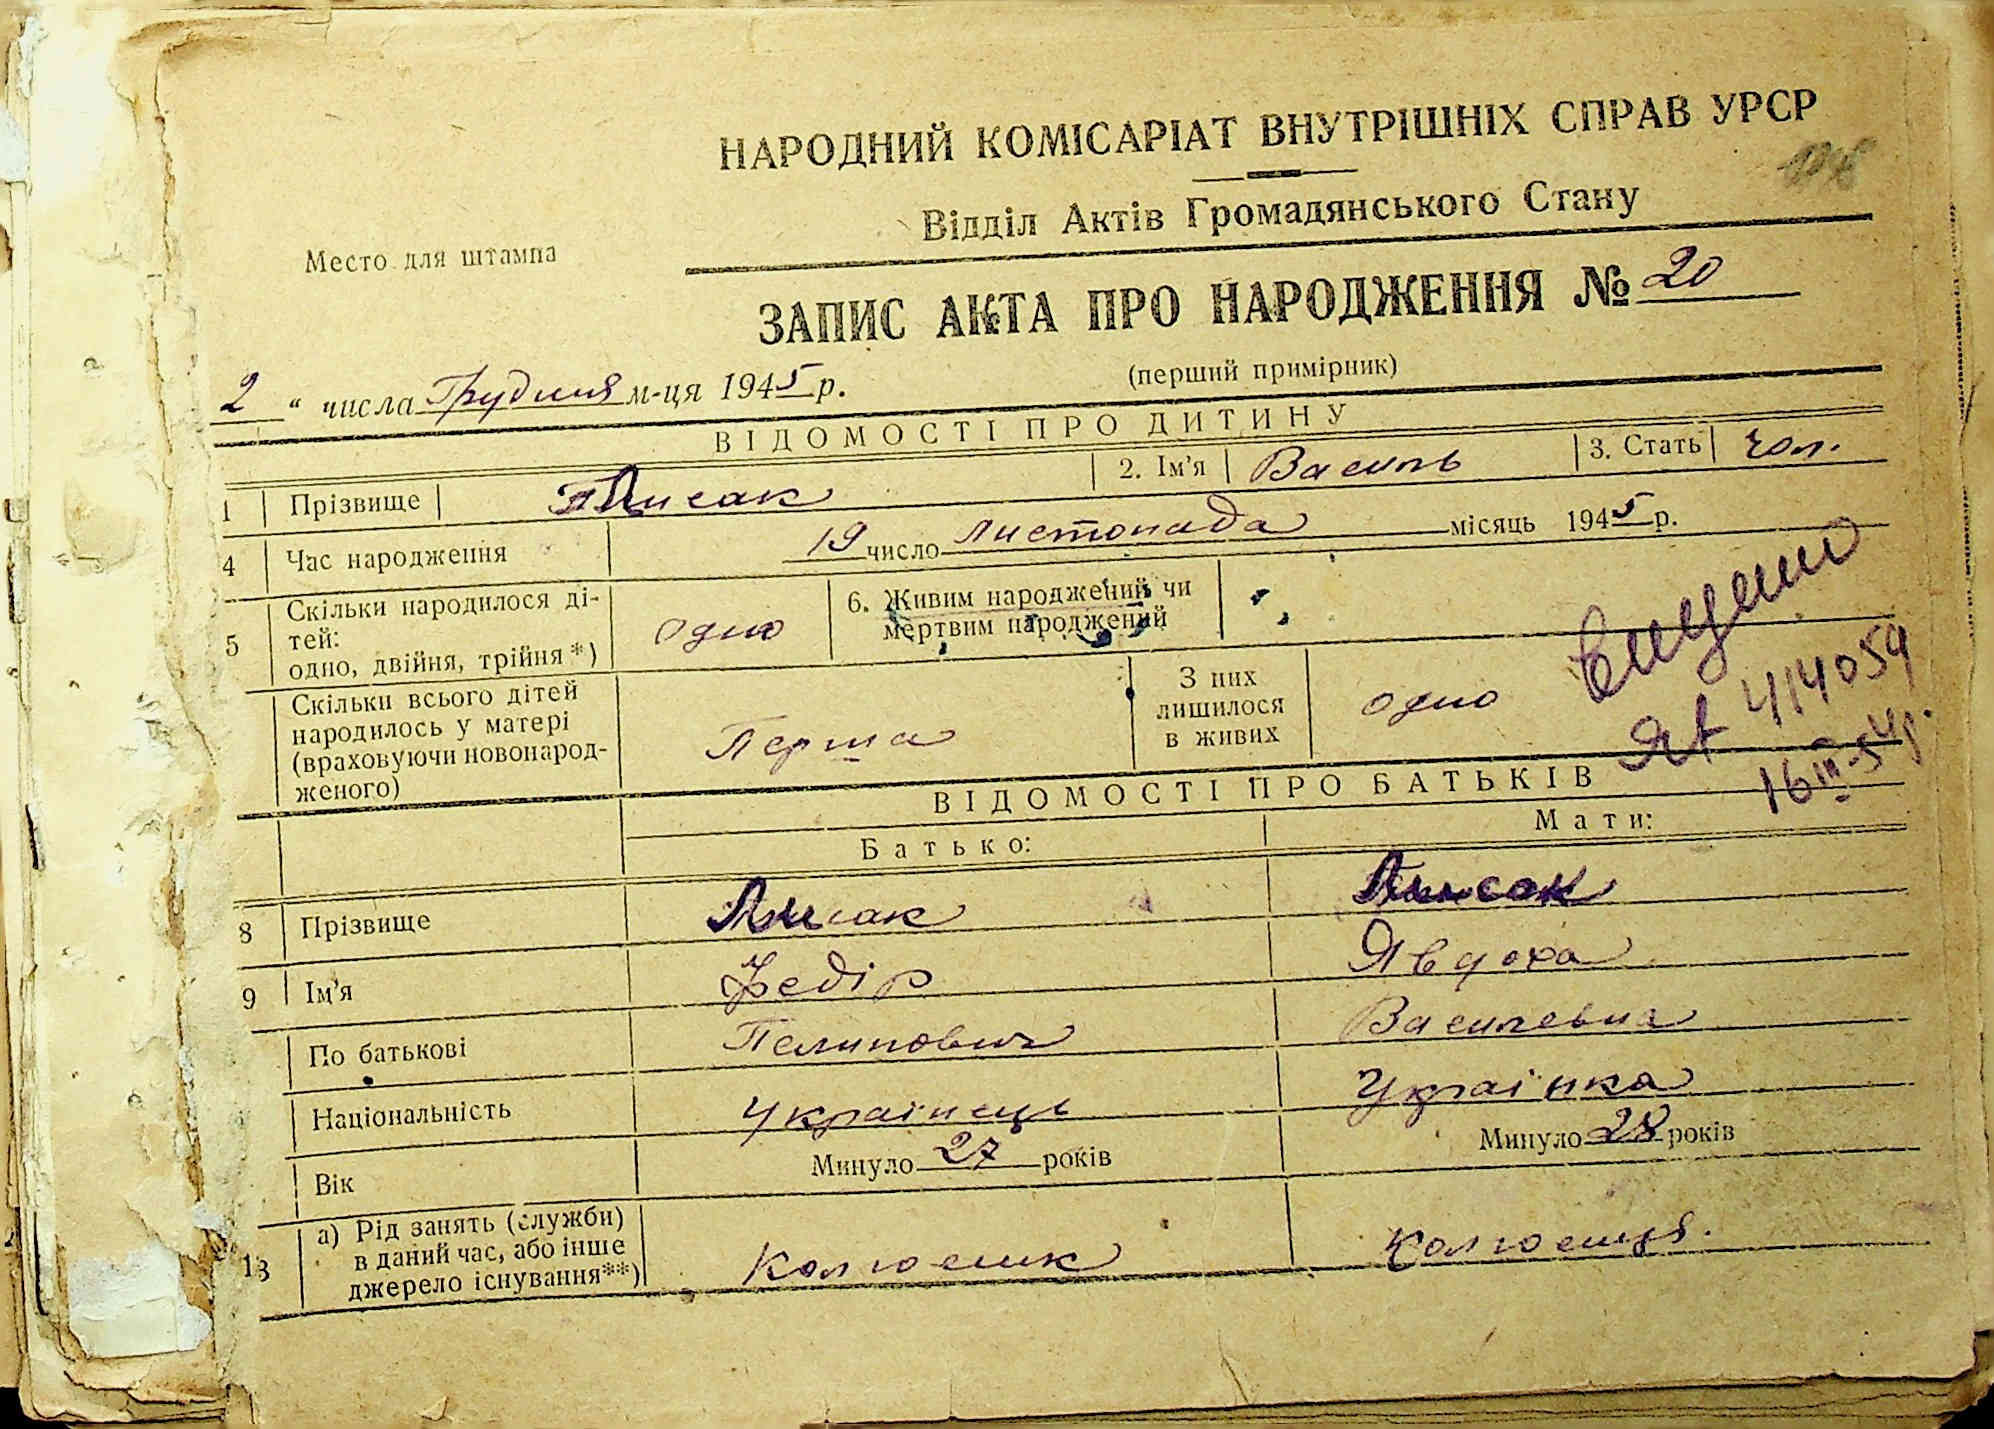 НАРОДНИЙ КОМІСАРІАТ ВНУТРІШНІХ СПРАВ УРСР
Відділ Актів Громадянського Стану
Место для штампа
ЗАПИС АКТА ПРО НАРОДЖЕННЯ № 20
(перший примірник)
2 " числа Грудння м-ця 1945 р.
ВІДОМОСТІ ПРО ДИТИНУ
1 Прізвище Лисак 2. Ім'я Василь 3. Стать чол.
4 Час народження 19 число Листопада місяць 1945 р.
5 Скільки народилося ді-
тей:
одно, двійня, трійня*) одно 6. Живим народжений чи
мертвим народжений
Скільки всього дітей
народилось у матері
(враховуючи новонарод-
женого) Перша З них
лишилося
в живих одно
ЯА 414059
16 III-54р.
ВІДОМОСТІ ПРО БАТЬКІВ
Батько: Мати:
8 Прізвище Лисак Лисак
9 Ім'я Федір Явдоха
По батькові Пелипович Василевна
Національність Українець Українка
Вік Минуло 27 років Минуло 28 років
13 а) Рід занять (служби)
в даний час, або інше
джерело існування**) Колгосник Колгосниця.